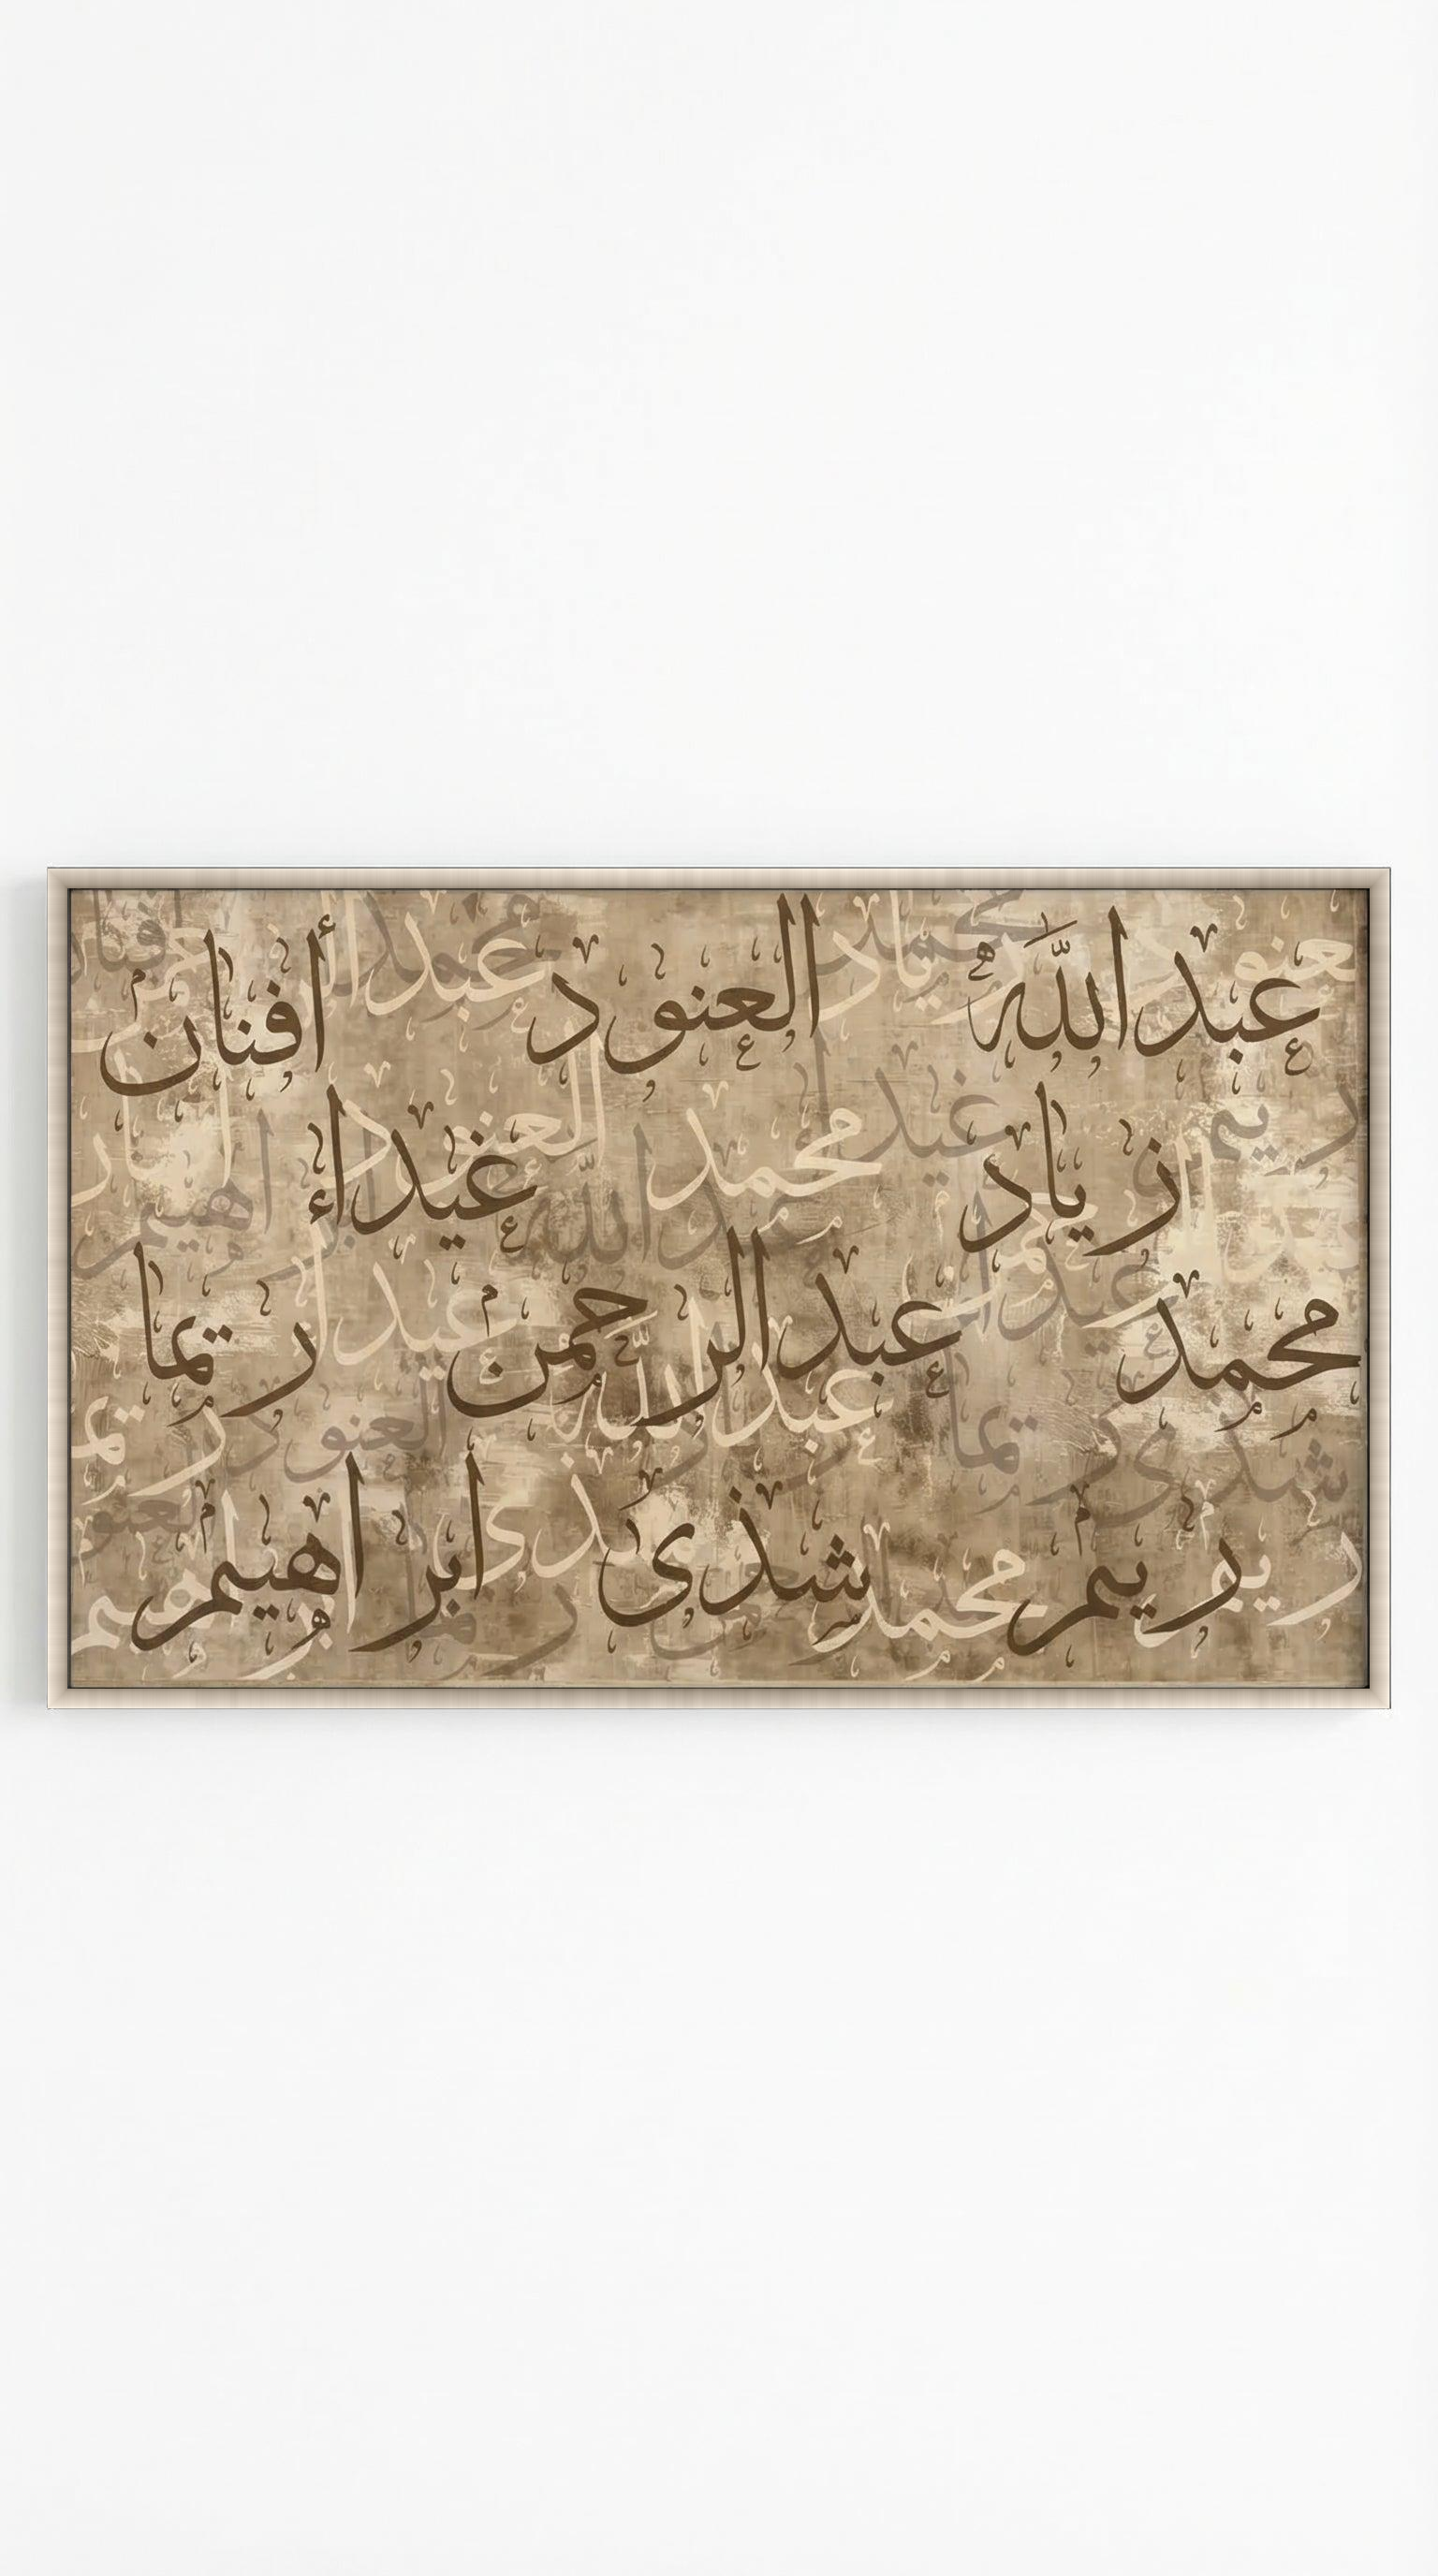 عبدالله العنود أفنان
زياد غيداء
محمد عبدالرحمن ريما
ريم شذى ابراهيم